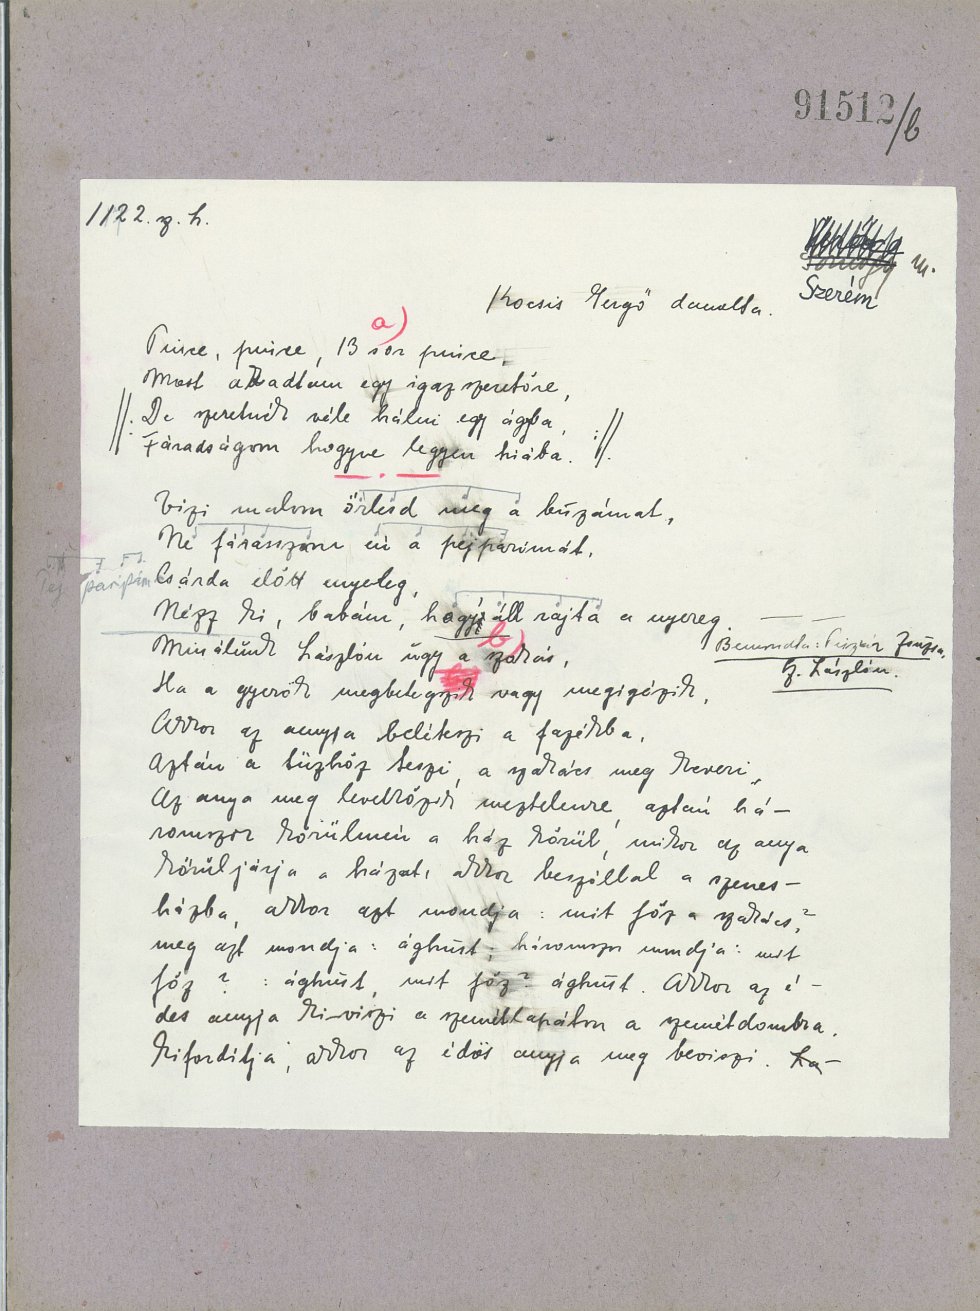 91512/b
1122. sz. h.
m.
Szerém
Kocsis Gergő danolta.
a)
Pince, pince, 13 sor pince,
Most akadtam egy igaz szeretőre,
//: De szeretnék véle hálni egy ágba, ://
Fáradságom hogyve legyen hiába.
Vizi malom őrlesd meg a búzámat,
Ne fárásszam én a pejparimát.
pej paripám
Csárda előtt nyeleg,
Nézz ki, babám, hogy áll rajta a nyereg.
b)
Minálunk Lászlón úgy a szokás,
Bemondta: Zsuzsa,
Sz. Lászlón.
Ha a gyerök megbetegszik vagy megigézik,
Akkor az annyja beléteszi a fazékba.
Aztán a tüzhöz teszi, a szakács meg keveri,
Az anya meg levetkőzik meztelenre, aztán há-
romszor körülmén a ház körül, mikor az anya
körüljárja a házat, akkor beszóllal a szenes-
házba, akkor azt mondja: mit főz a szakács?
meg azt mondja: ághúst, háromszor mondja: mit
főz? : ághúst, mit főz? ághúst. Akkor az é-
des anyja ki-viszi a szemétlapáton a szemétdombra.
Kifordítja, akkor az édös anyja meg beviszi. Ha-